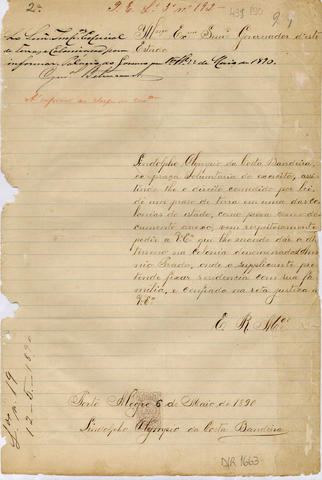 2ª P. E. L. 3º nº 193
439 190
91
Illmo Exmo Snr. Governador d'este
Estado
Ao Snr. Inspector Especial
de Terras e Colonisação para
informar. Palacio do Governo em 12 de Maio de 1890.
A informe
Lindolpho Olympio da Costa Bandeira,
ex-praça voluntaria do exercito, assis-
tindo-lhe o direito concedido por lei,
de um praso de terra em uma das co-
lonias do estado, como prova com o do-
cumento anexo, vem respeitosamente
pedir a V. Exª que lhe mande dar o di-
to terreno na colonia denominada Anto-
nio Prado, onde o supplicante pre-
tende fixar residencia com sua fa-
milia, e confiado na reta justiça de
V. Exª
E. R. Mce
Porto Alegre 6 de Maio de 1890
Lindolpho Olympio da Costa Bandeira
nº 19
12-5-1890
D/R 1663